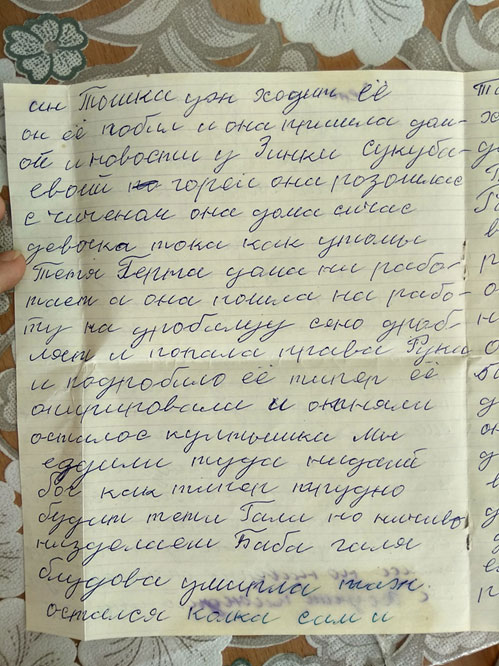 ин Тошка уэн ходит её
он её побил и она пришла дам-
ой и новости у Зинки Сукуба-
евой горей она розошлас
с чиченам она дома сичас
девочка тока как у томы
Тетя Герта дама ни рабо-
тает а она пошла на рабо-
ту на дробилку сено дроб-
лят и попала права Рука
и подробило её типер её
апирировали и отняли
осталос культышка Мы
ездили туда нидай
бог как типер трудно
будит тети Гали но ничиво
низделаем Баба галя
блудова умирла таж.
остался колка сам и